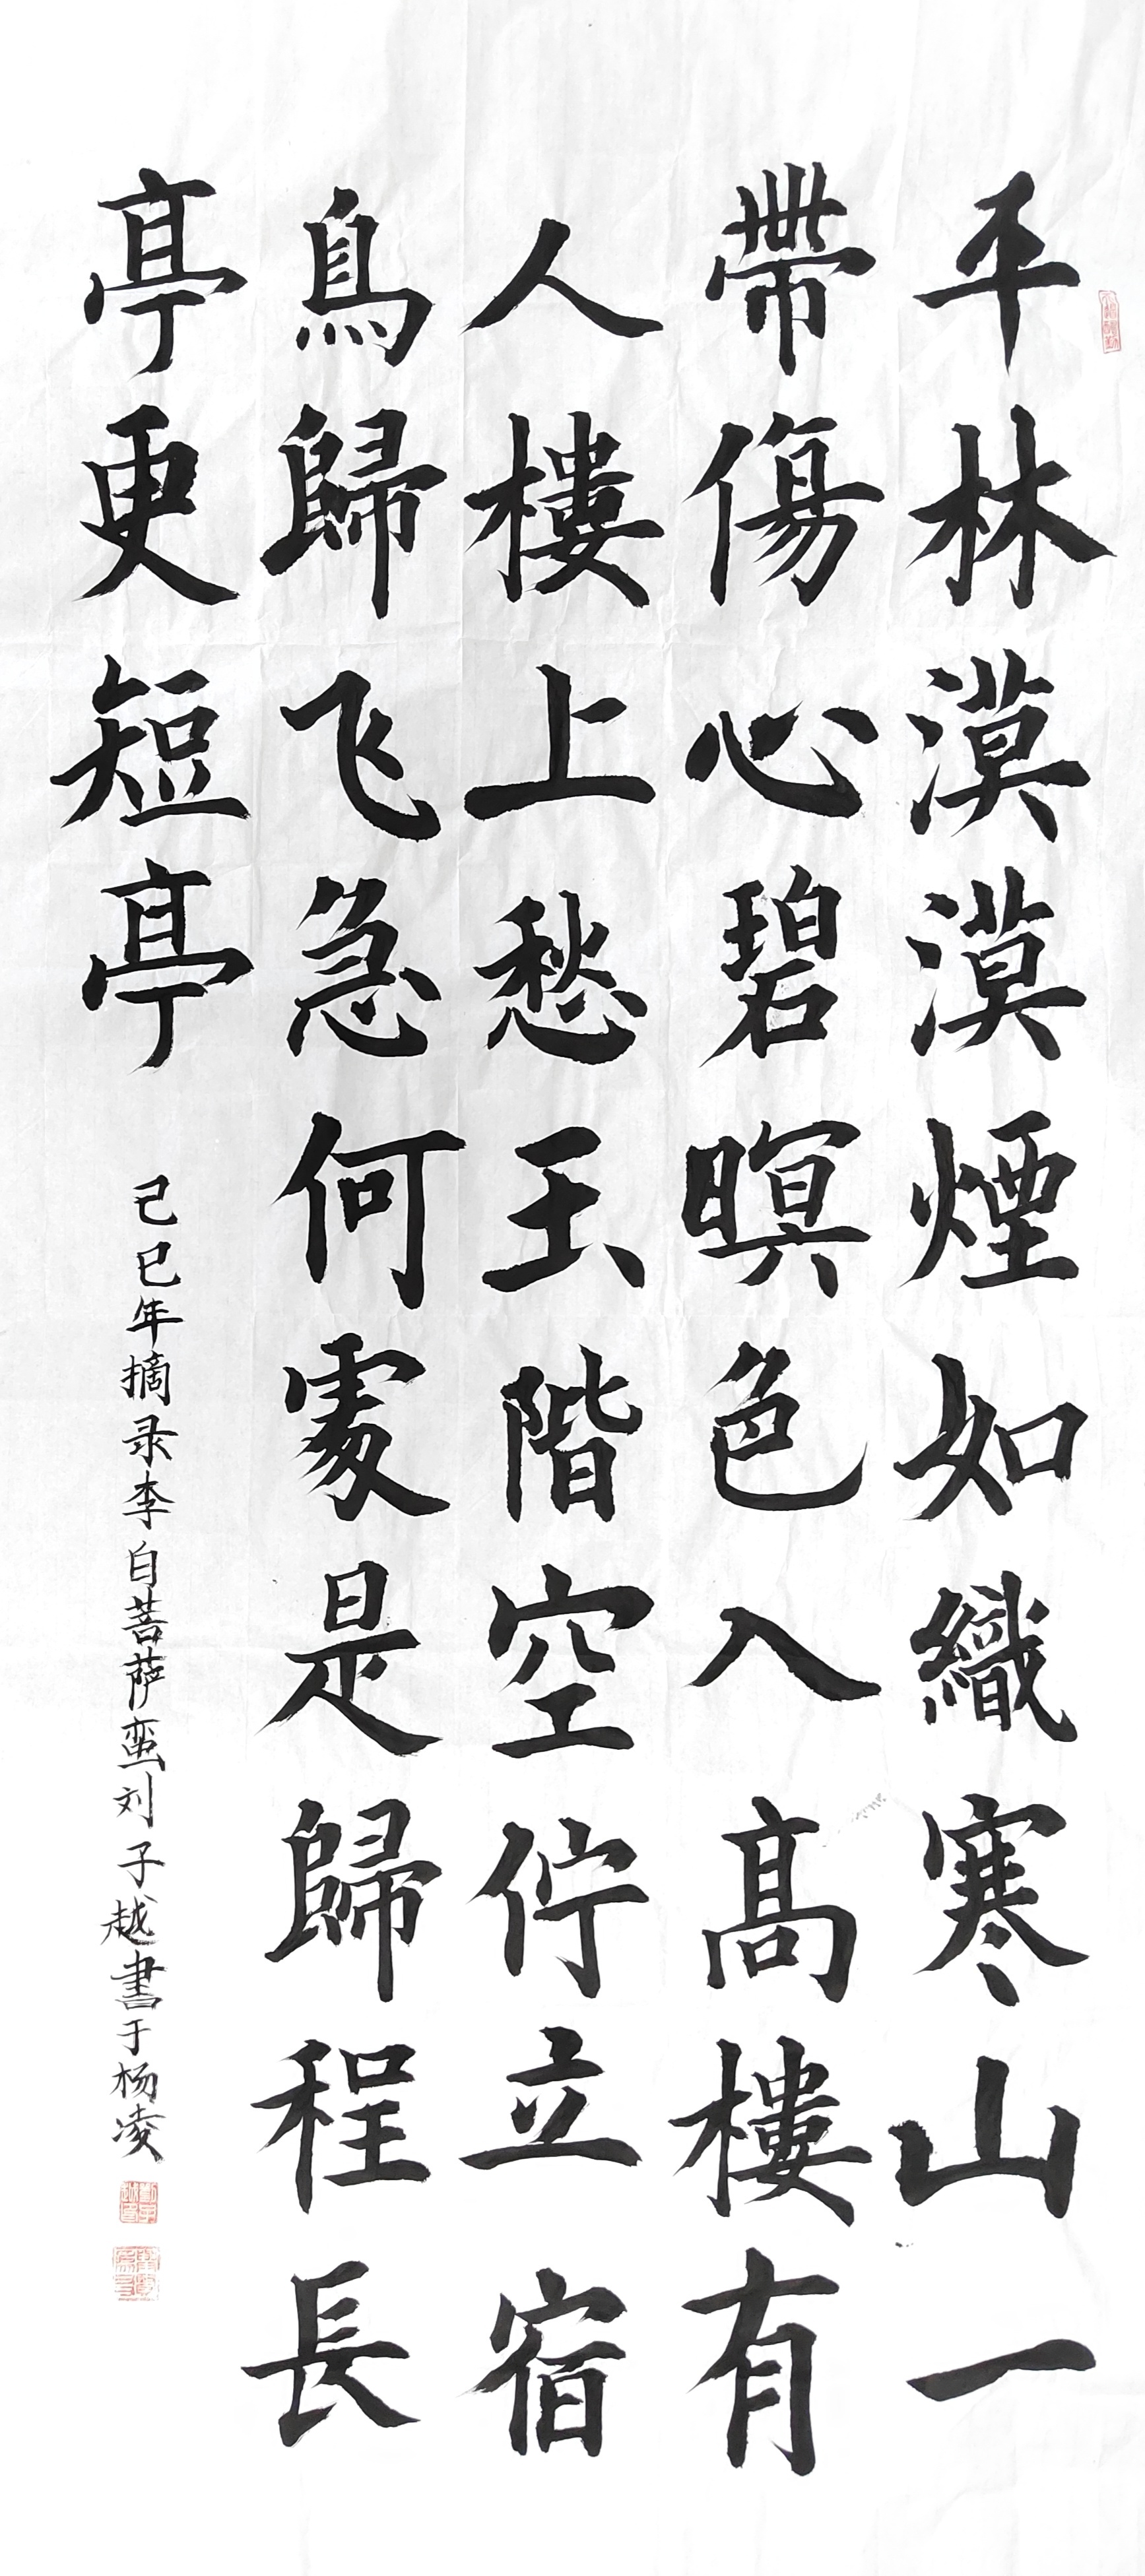 平林漠漠煙如織寒山一
帶傷心碧暝色入高樓有
人樓上愁玉階空佇立宿
鳥歸飞急何處是歸程長
亭更短亭
己巳年摘录李白菩萨蛮刘子越書于杨凌